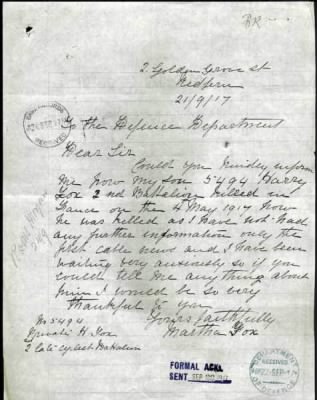 2 Golden Grove st
Redfern
21/9/17
To the Defence Department
Dear Sir
Could you kindly inform
me how my Son 5494 Harry
Fox 2nd Battalion killed in
France on the 4 May 1917 how
he was killed as I have not had
any further information only the
first cable news and I have been
waiting very anxiously so if you
could tell me anything about
him I would be so very
thankful to you
Yours faithfully
Martha Fox
No 5494
Private H Fox
2 Battalion
FORMAL ACK.
SENT SEP 1917
RECEIVED
22 SEP 1917
OF DEFENCE